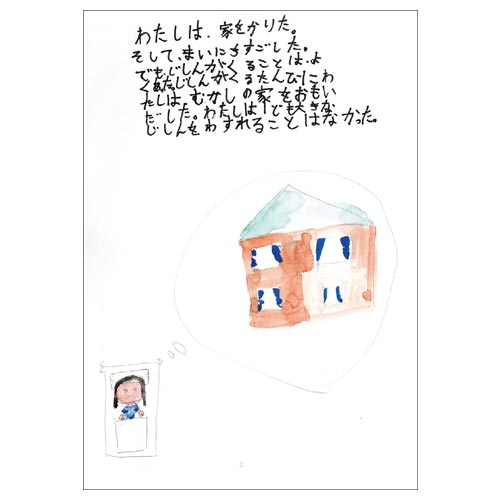 わたしは、家をかりた。
そして、まいにちすごした。
でも、じしんがくることは、よ
くあった。じしんがくるたんびにわ
たしは、むかしの家をおもい
だした。わたしは1ども大きな
じしんをわすれることはなかった。